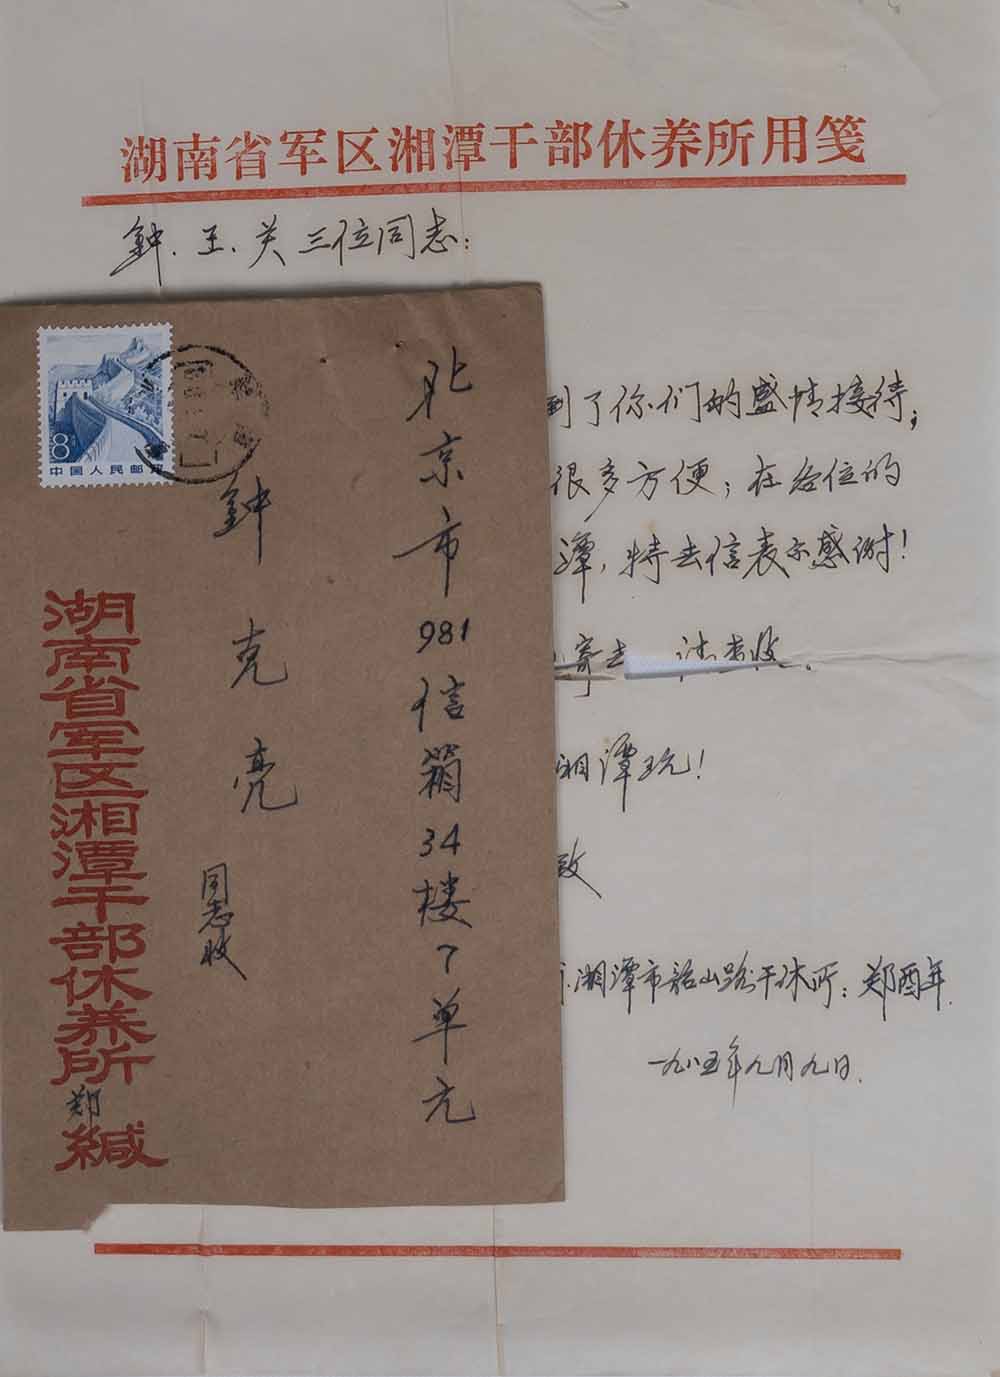 湖南省军区湘潭干部休养所用笺
鈡、王、关三位同志：
到了你们的盛情接待，
很多方便；在各位的
潭，特去信表示感谢！
寄去
收。
湘潭玩！
致
湘潭市韶山路干休所：郑酉年
一九八五年九月九日
8
中国人民邮政
北京市981信箱34楼7单元
鈡克亮
同志收
湖南省军区湘潭干部休养所
郑
缄